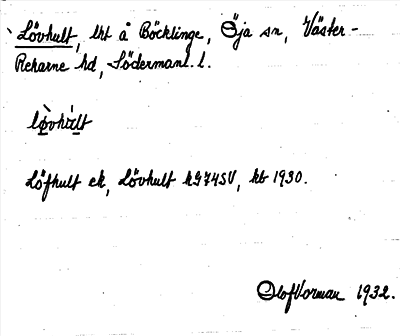 Lövhult, lht å Böcklinge, Öja sn, Väster-
Rekarne hd, Södermanl. l.
løvhult
Löfhult ek, Lövhult kG74SV, kb 1930.
Olof Vorman 1932.